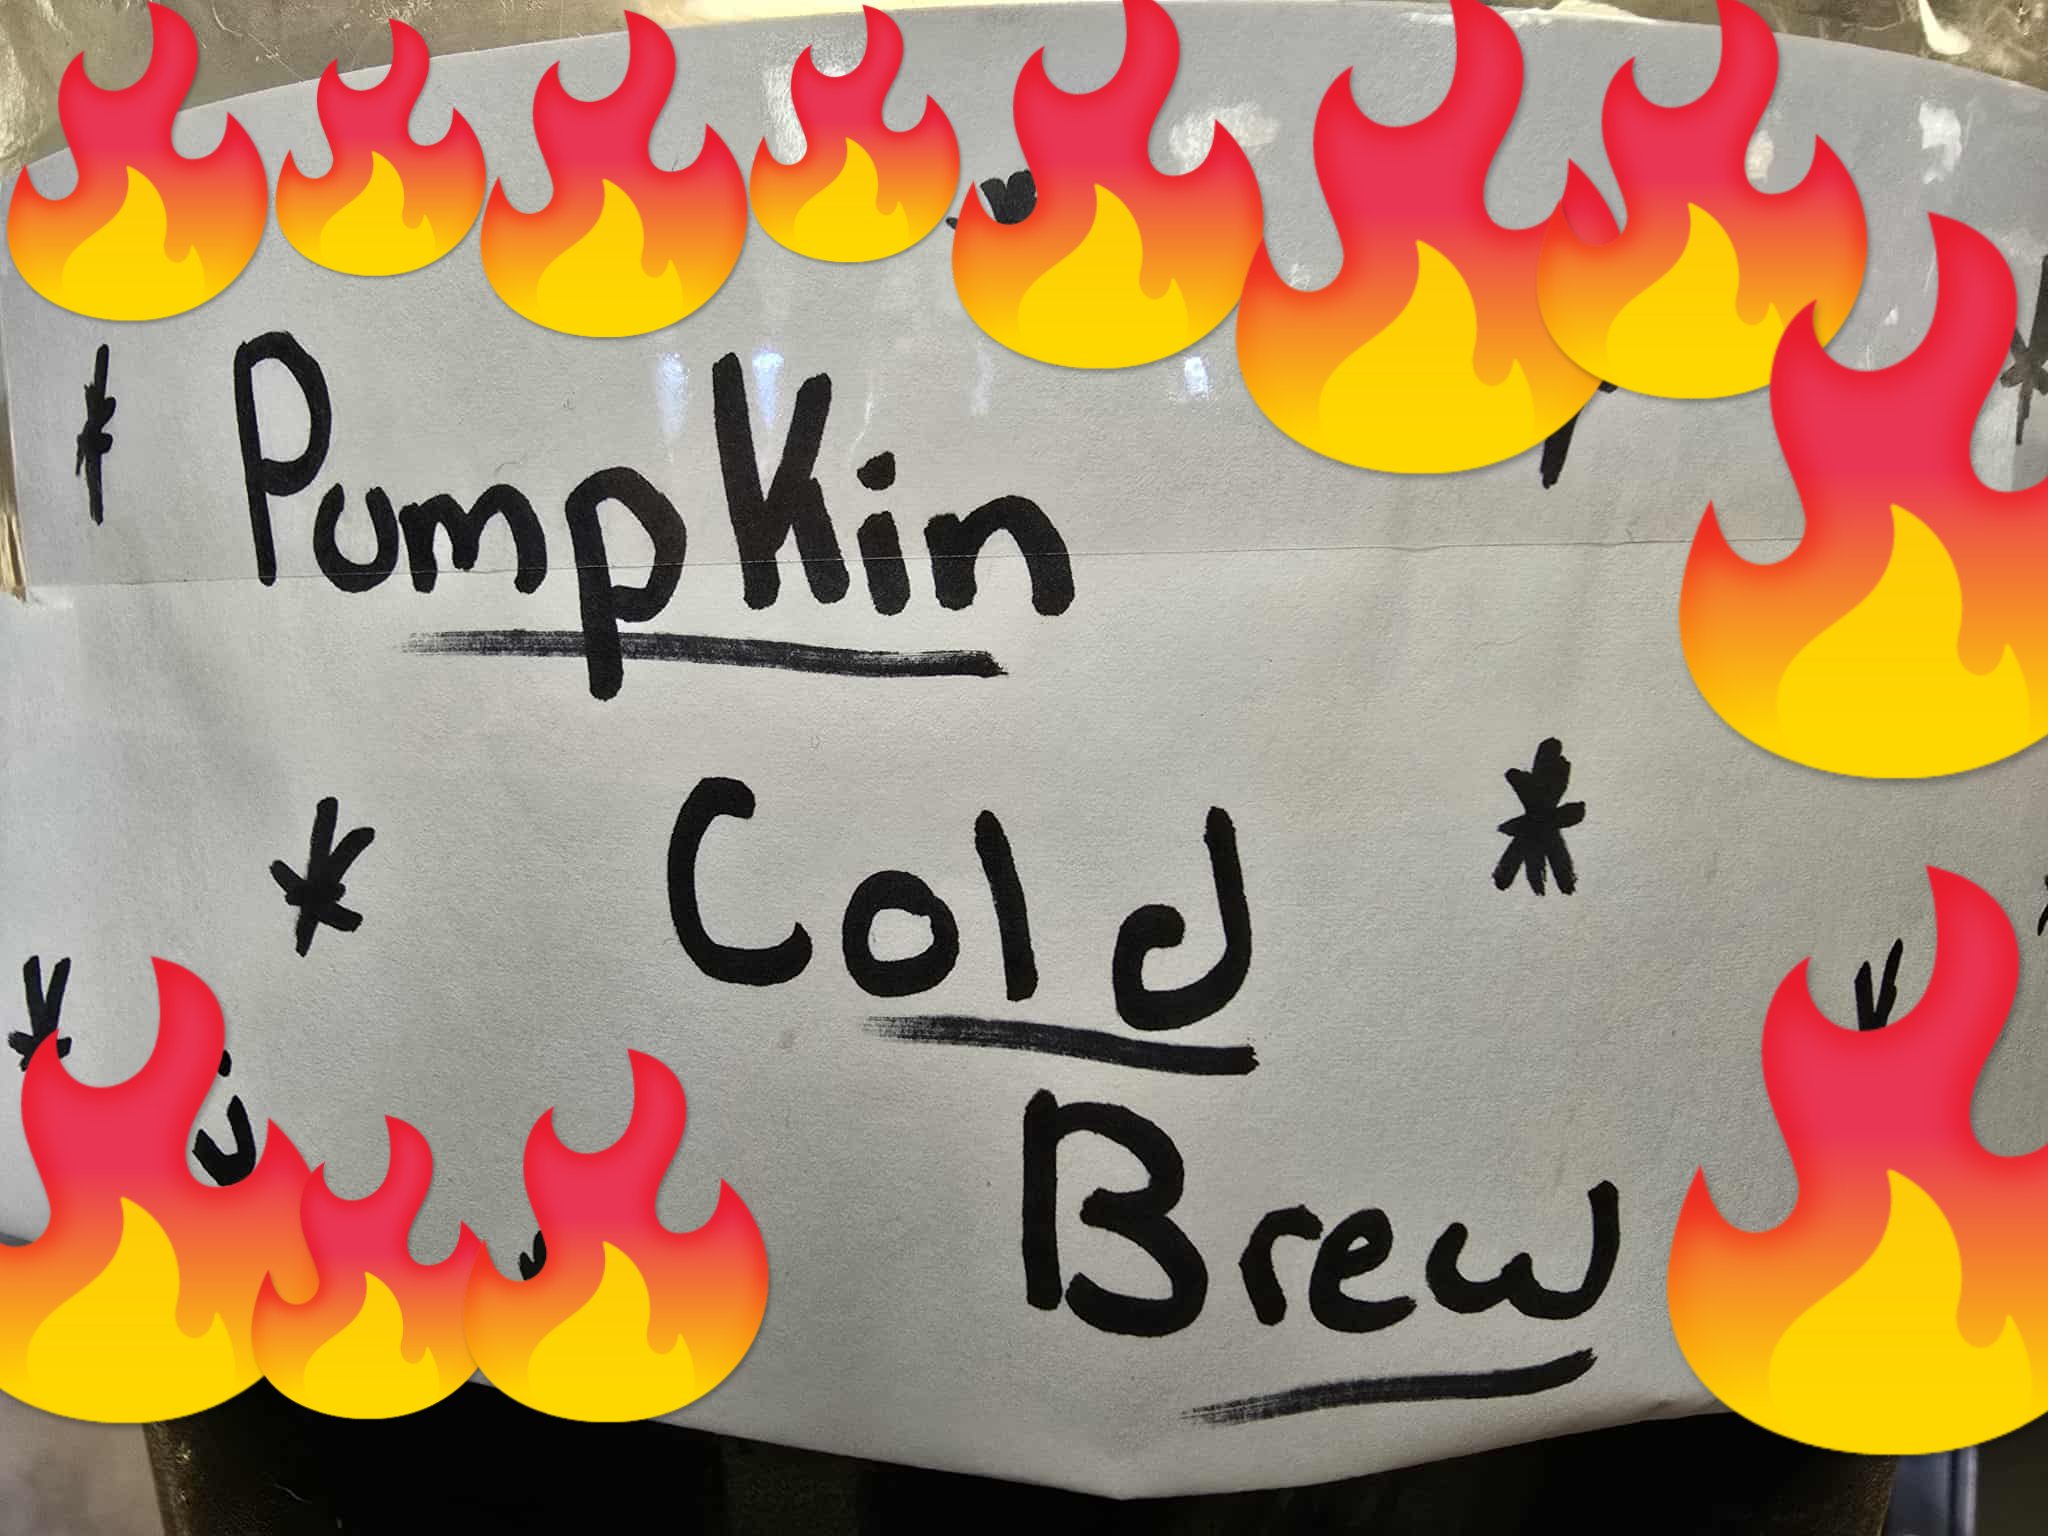 Pumpkin
Cold
Brew